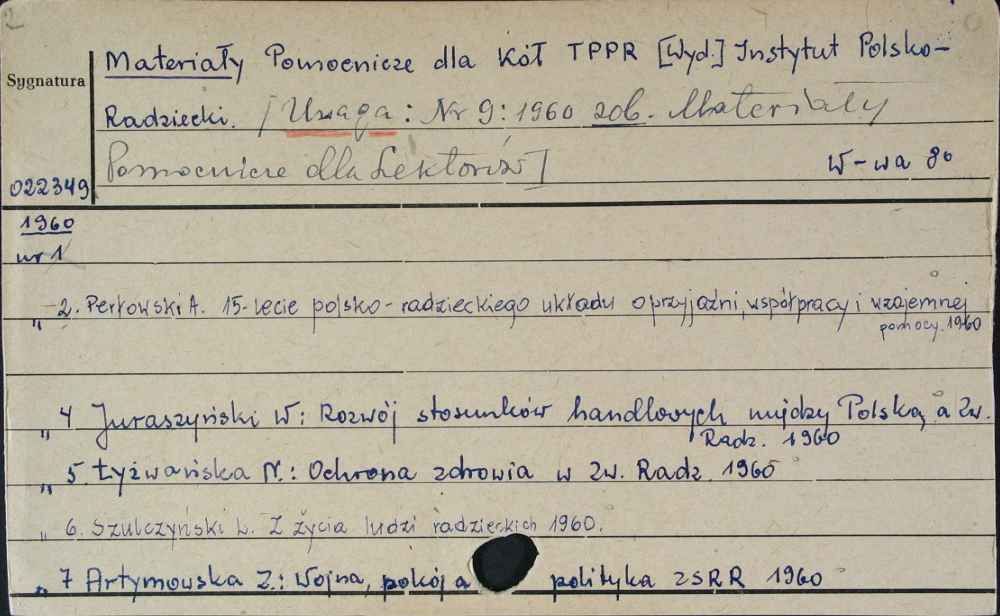 Materiały Pomocnicze dla Kół TPPR [Wyd.] Instytut Polsko-
Sygnatura
Radziecki. [Uwaga: Nr 9: 1960 zob. Materiały
Pomocnicze dla Lektorów] W-wa 8°
022349
1960
nr 1
„ 2. Perłowski A. 15-lecie polsko-radzieckiego układu o przyjaźni, współpracy i wzajemnej
pomocy. 1960
„ 4 Juraszyński W: Rozwój stosunków handlowych między Polską, a Zw.
Radz. 1960
„ 5. Łyżwańska N.: Ochrona zdrowia w Zw. Radz. 1960
„ 6. Szulczyński L. Z życia ludzi radzieckich 1960.
„ 7 Artymowska Z.: Wojna, pokój a polityka ZSRR 1960